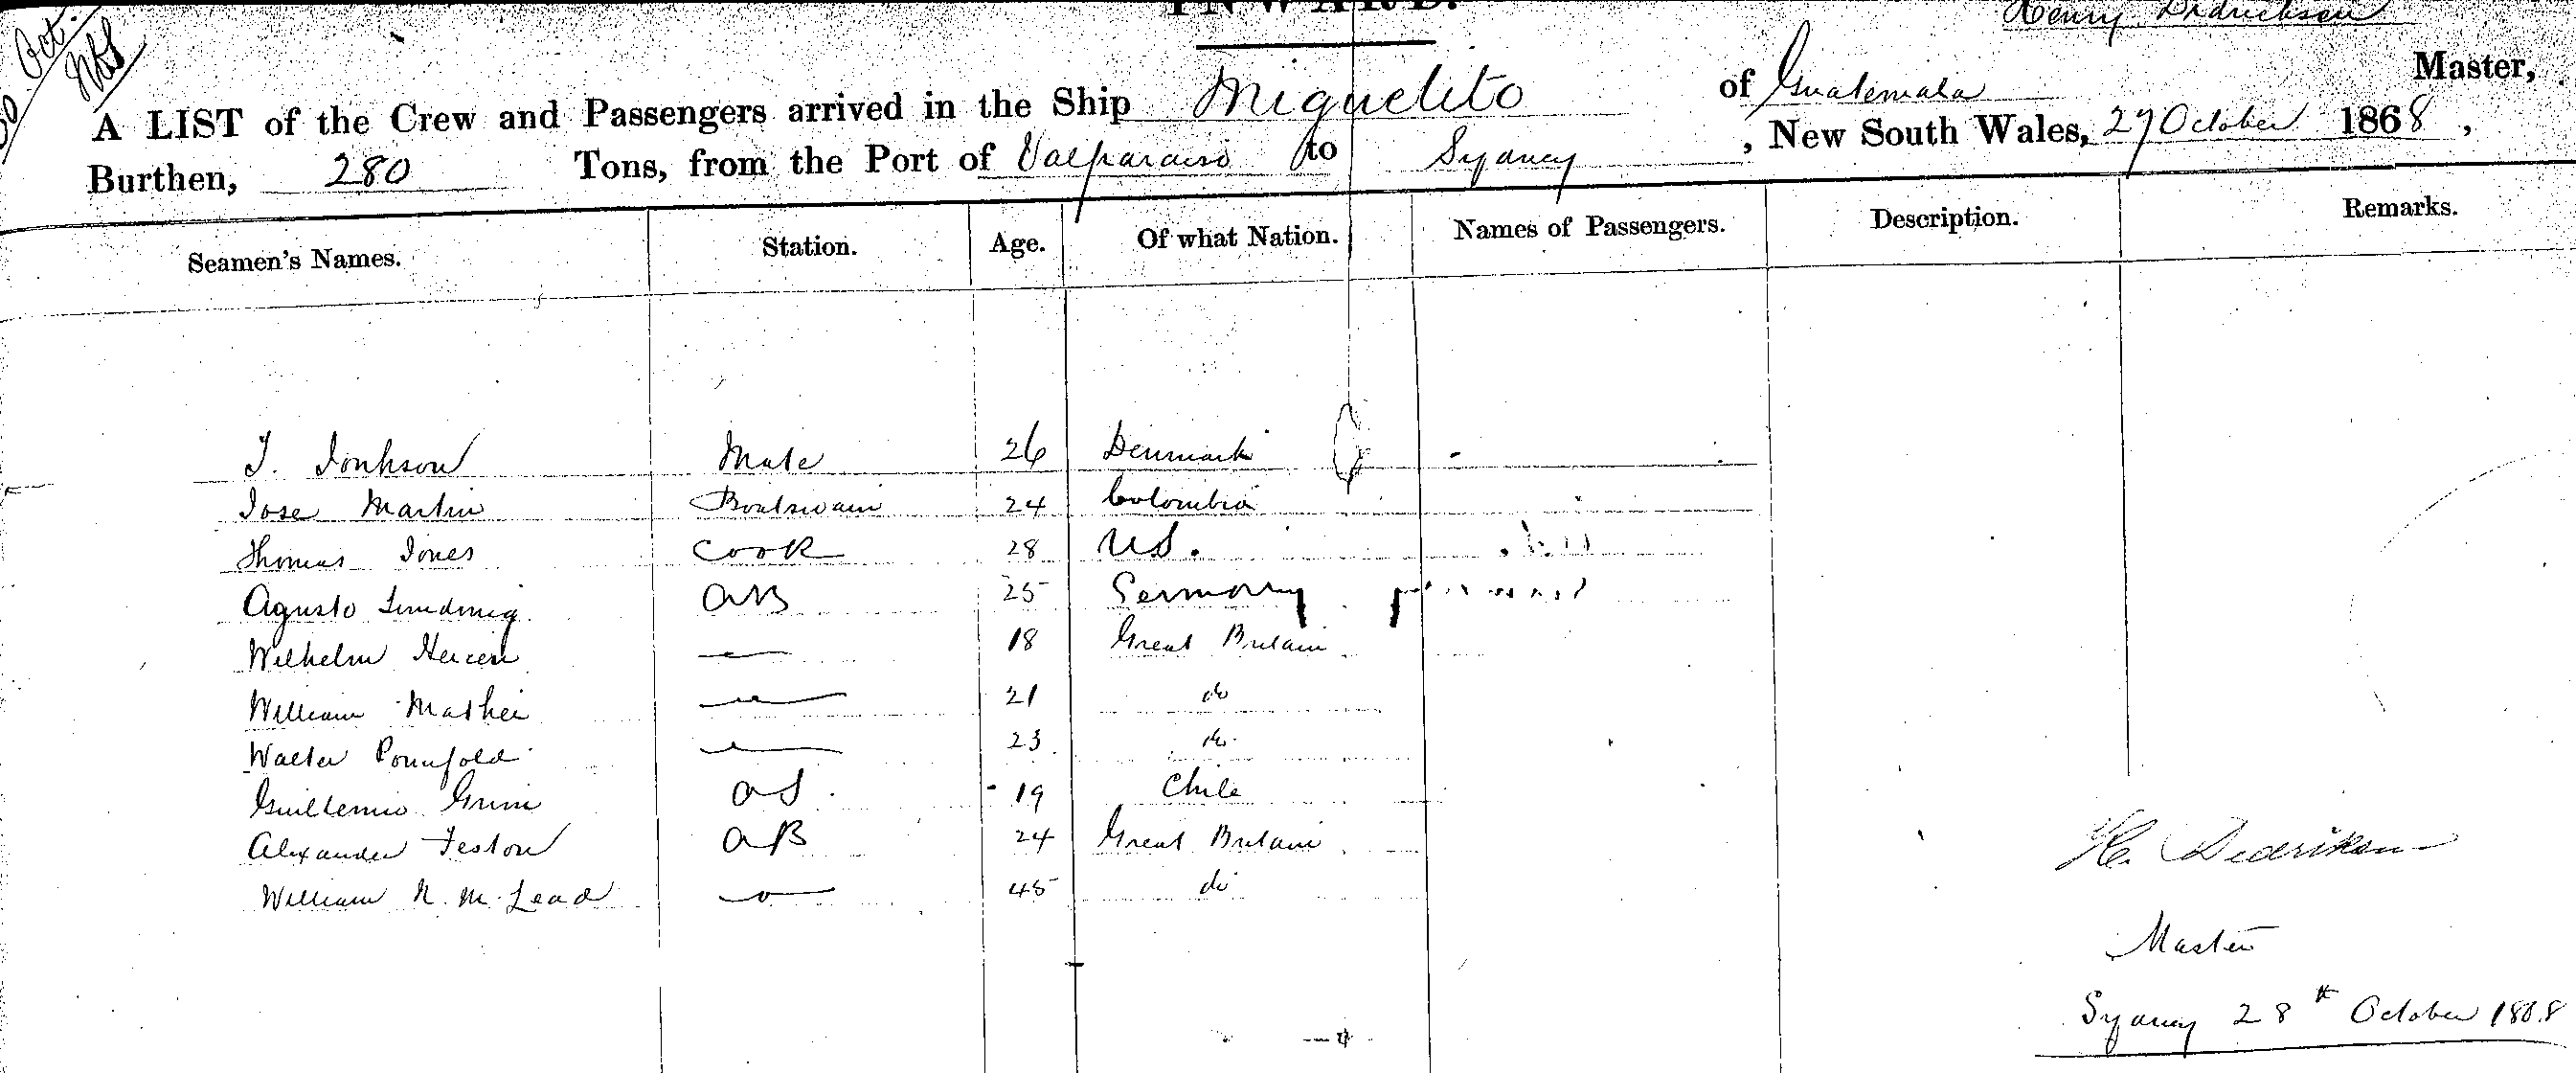 INWARD.
Oct.
Henry Didricksen
Master,
A LIST of the Crew and Passengers arrived in the Ship Miguelito of Guatemala
Burthen, 280 Tons, from the Port of Valparaiso to Sydney, New South Wales, 27 October 1868,
Seamen's Names. Station. Age. Of what Nation. Names of Passengers. Description. Remarks.
J. Jonhson Mate 26 Denmark
Jose Martin Boatswain 24 Colombia
Thomas Jones Cook 28 U.S.
Agusto AB 25 Germany
Wilhelm 18 Great Britain
William Mather 21 do
Walter 23 do
Guillermo Grim OS 19 Chile
Alexander Feston AB 24 Great Britain
William N. M. Lead 45 do
H. Dedriksen
Master
Sydney 28th October 1868